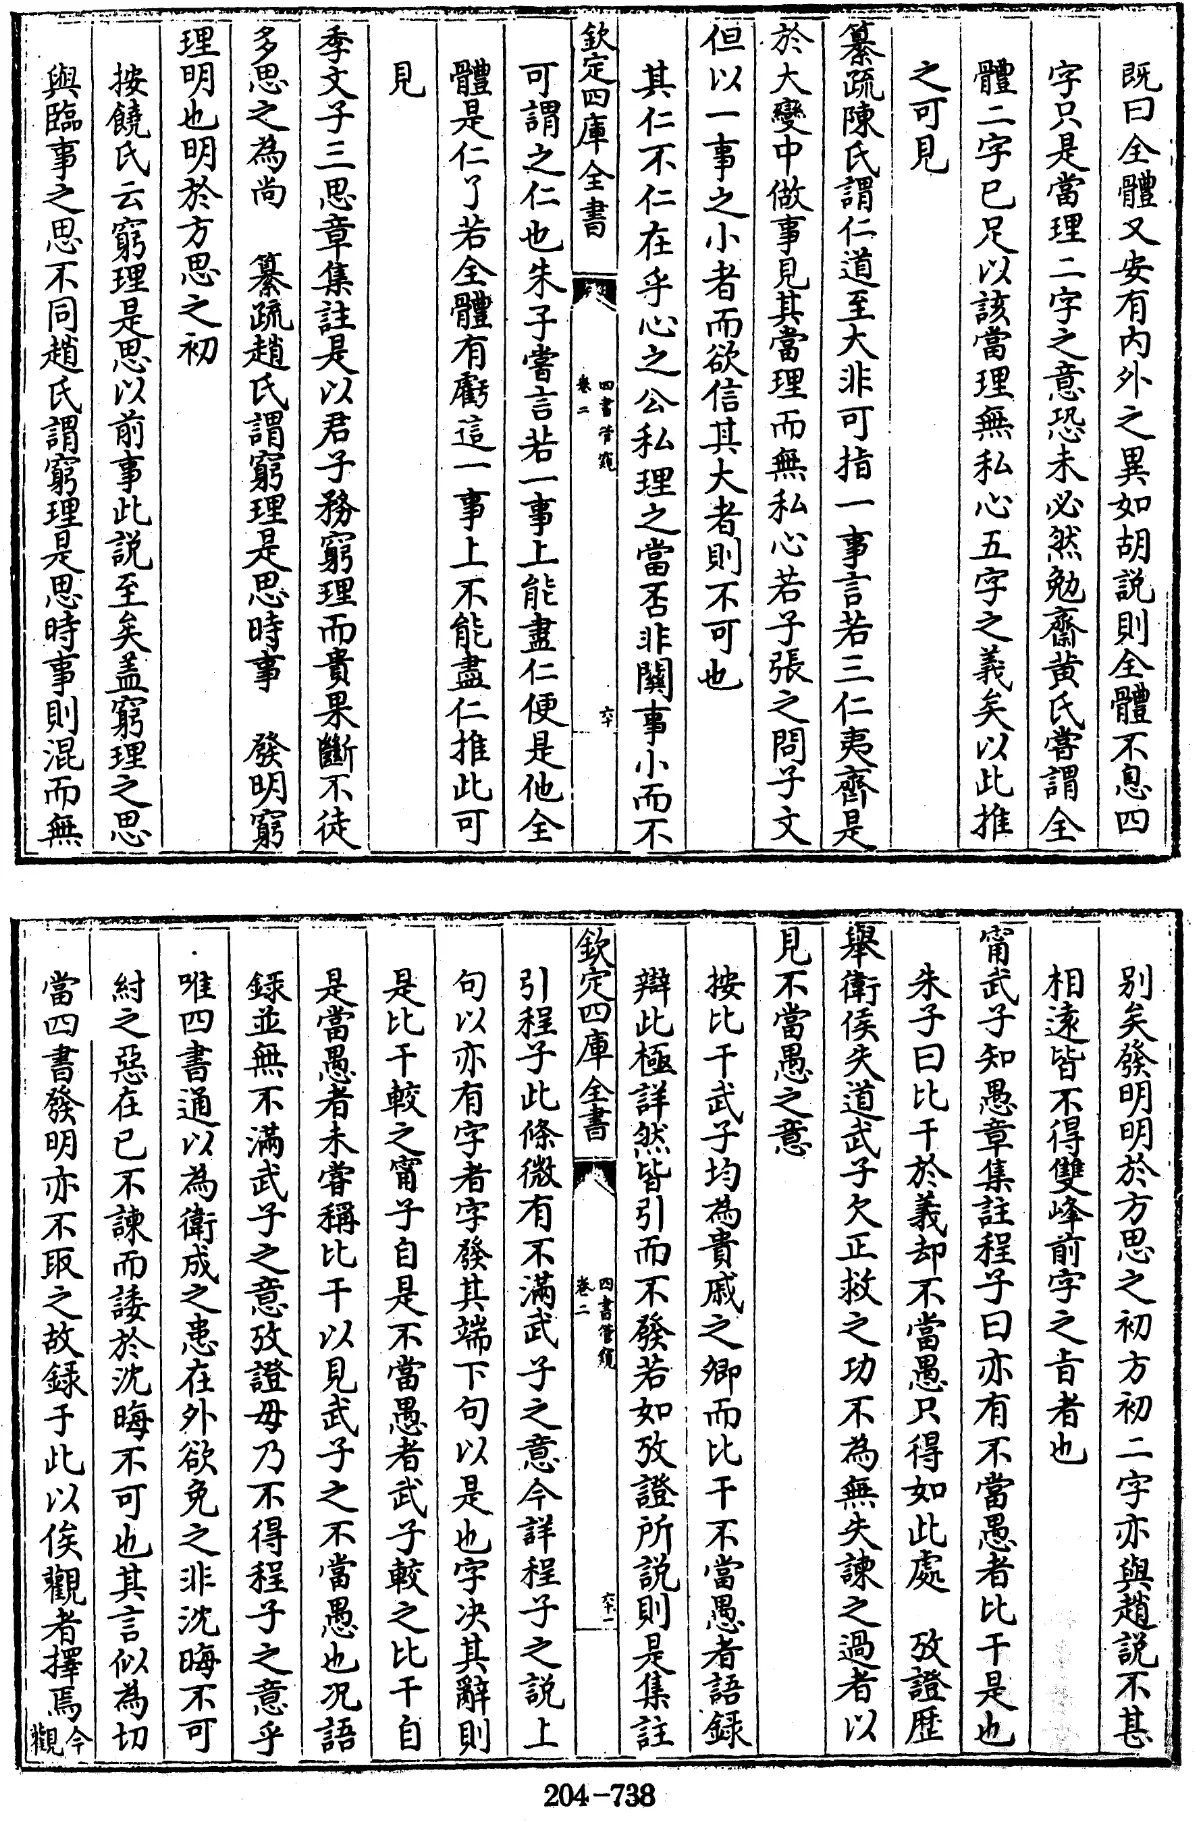 既曰全體又安有内外之異如胡説則全體不息四
字只是當理二字之意恐未必然勉齋黄氏嘗謂全
體二字已足以該當理無私心五字之義矣以此推
之可見
纂疏陳氏謂仁道至大非可指一事言若三仁夷齊是
於大變中做事見其當理而無私心若子張之問子文
但以一事之小者而欲信其大者則不可也
其仁不仁在乎心之公私理之當否非關事小而不
欽定四庫全書
四書管窺
卷二
六十
可謂之仁也朱子嘗言若一事上能盡仁便是他全
體是仁了若全體有虧這一事上不能盡仁推此可
見
季文子三思章集註是以君子務窮理而貴果斷不徒
多思之為尚 纂疏趙氏謂窮理是思時事 發明窮
理明也明於方思之初
按饒氏云窮理是思以前事此説至矣盖窮理之思
與臨事之思不同趙氏謂窮理是思時事則混而無
别矣發明明於方思之初方初二字亦與趙説不甚
相遠皆不得雙峰前字之㫖者也
甯武子知愚章集註程子曰亦有不當愚者比干是也
朱子曰比干於義却不當愚只得如此處 攷證歷
舉衛侯失道武子欠正救之功不為無失諫之過者以
見不當愚之意
按比干武子均為貴戚之卿而比干不當愚者語録
辯此極詳然皆引而不發若如攷證所説則是集註
欽定四庫全書
四書管窺
卷二
六十一
引程子此條微有不滿武子之意今詳程子之説上
句以亦有字者字發其端下句以是也字决其辭則
是比干較之甯子自是不當愚者武子較之比干自
是當愚者未嘗稱比干以見武子之不當愚也况語
録並無不滿武子之意攷證毋乃不得程子之意乎
唯四書通以為衛成之患在外欲免之非沈晦不可
紂之惡在已不諫而諉於沈晦不可也其言似為切
當四書發明亦不取之故録于此以俟觀者擇焉今
觀
204-738